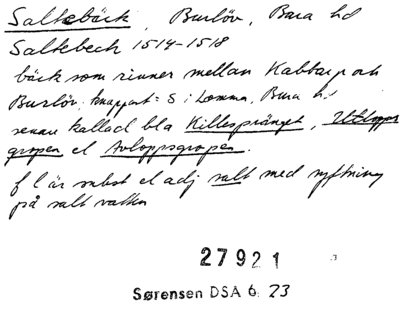 Saltebäck, Burlöv, Bara hd
Saltebech 1514-1518
bäck som rinner mellan Kabbarp och
Burlöv, knappast = S i Lomma, Bara hd
senare kallad bla Killesprånget, Utlopps
gropen el Avloppsgropen.
f l är subst el adj salt med syftning
på salt vatten
27921
Sørensen DSA 6: 23